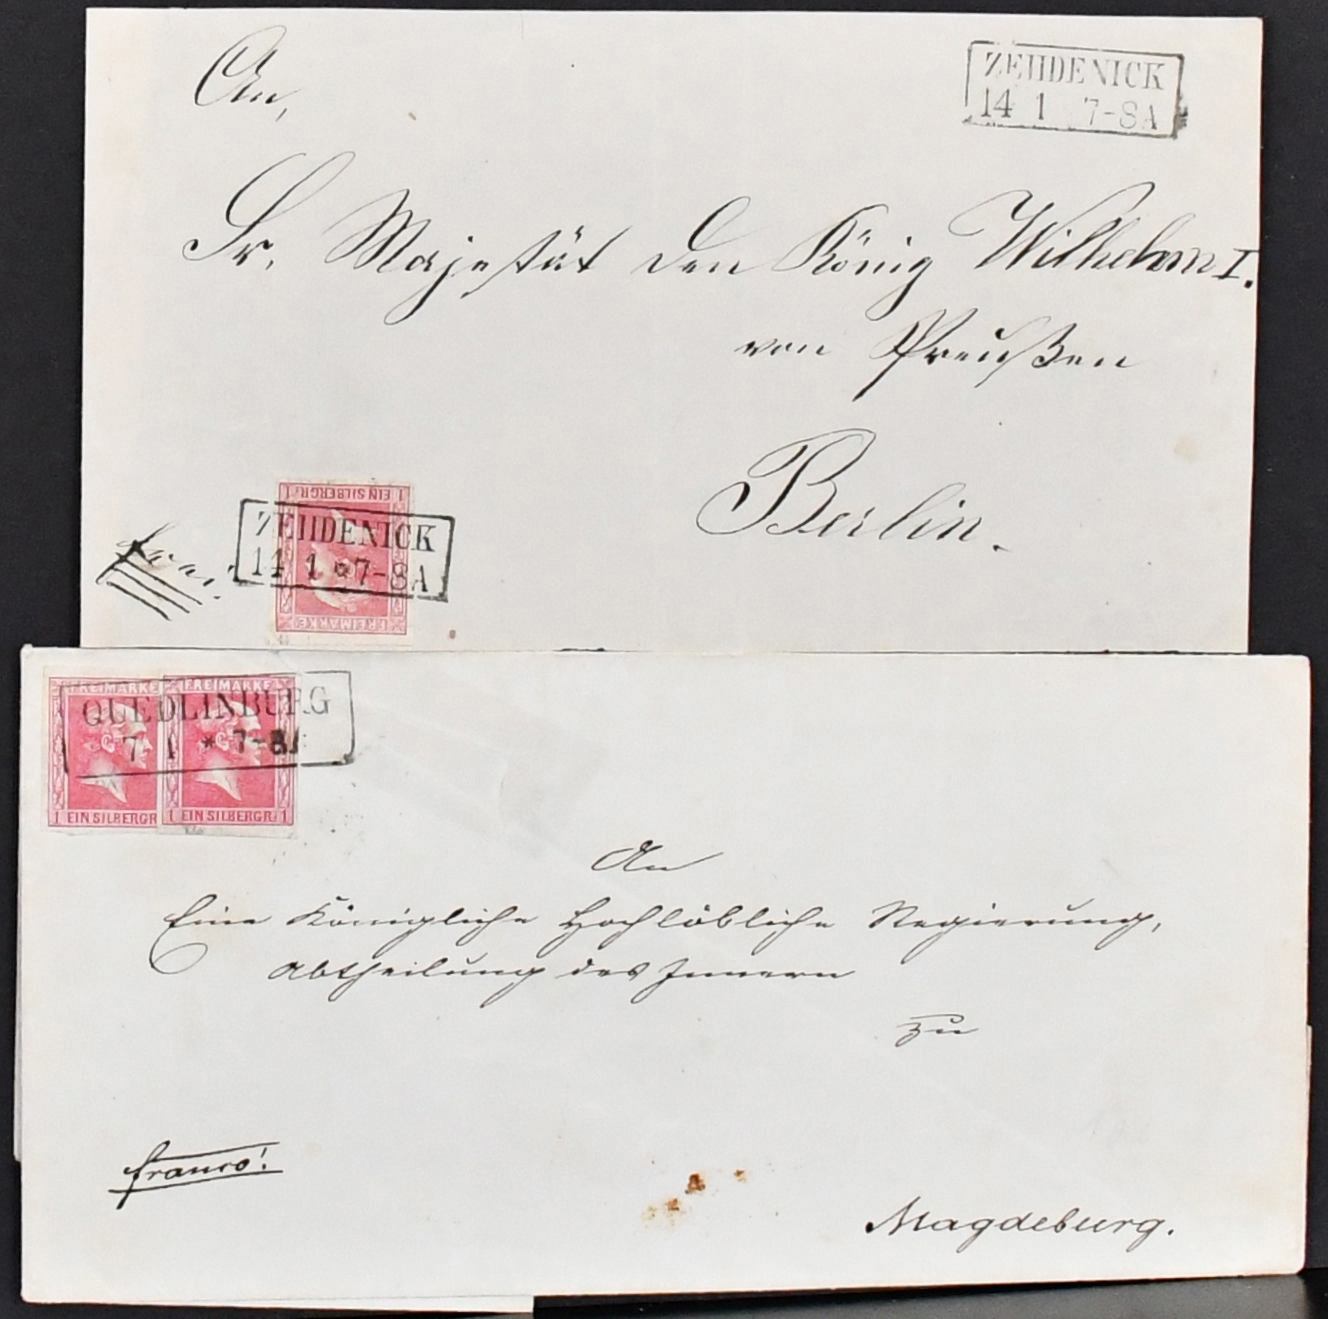 An,
ZEHDENICK
14 1 7-8A
Sr. Majestät den König Wilhelm I.
von Preußen
Berlin.
1 EIN SILBERGR. 1
ZEHDENICK
14 1 * 7-8A
FREIMARKE
FREIMARKE FREIMARKE
QUEDLINBURG
7 1 * 7-8A
1 EIN SILBERGR. 1 EIN SILBERGR. 1
An
Eine Königliche Hochlöbliche Regierung,
Abtheilung des Innern
zu
franco!
Magdeburg.